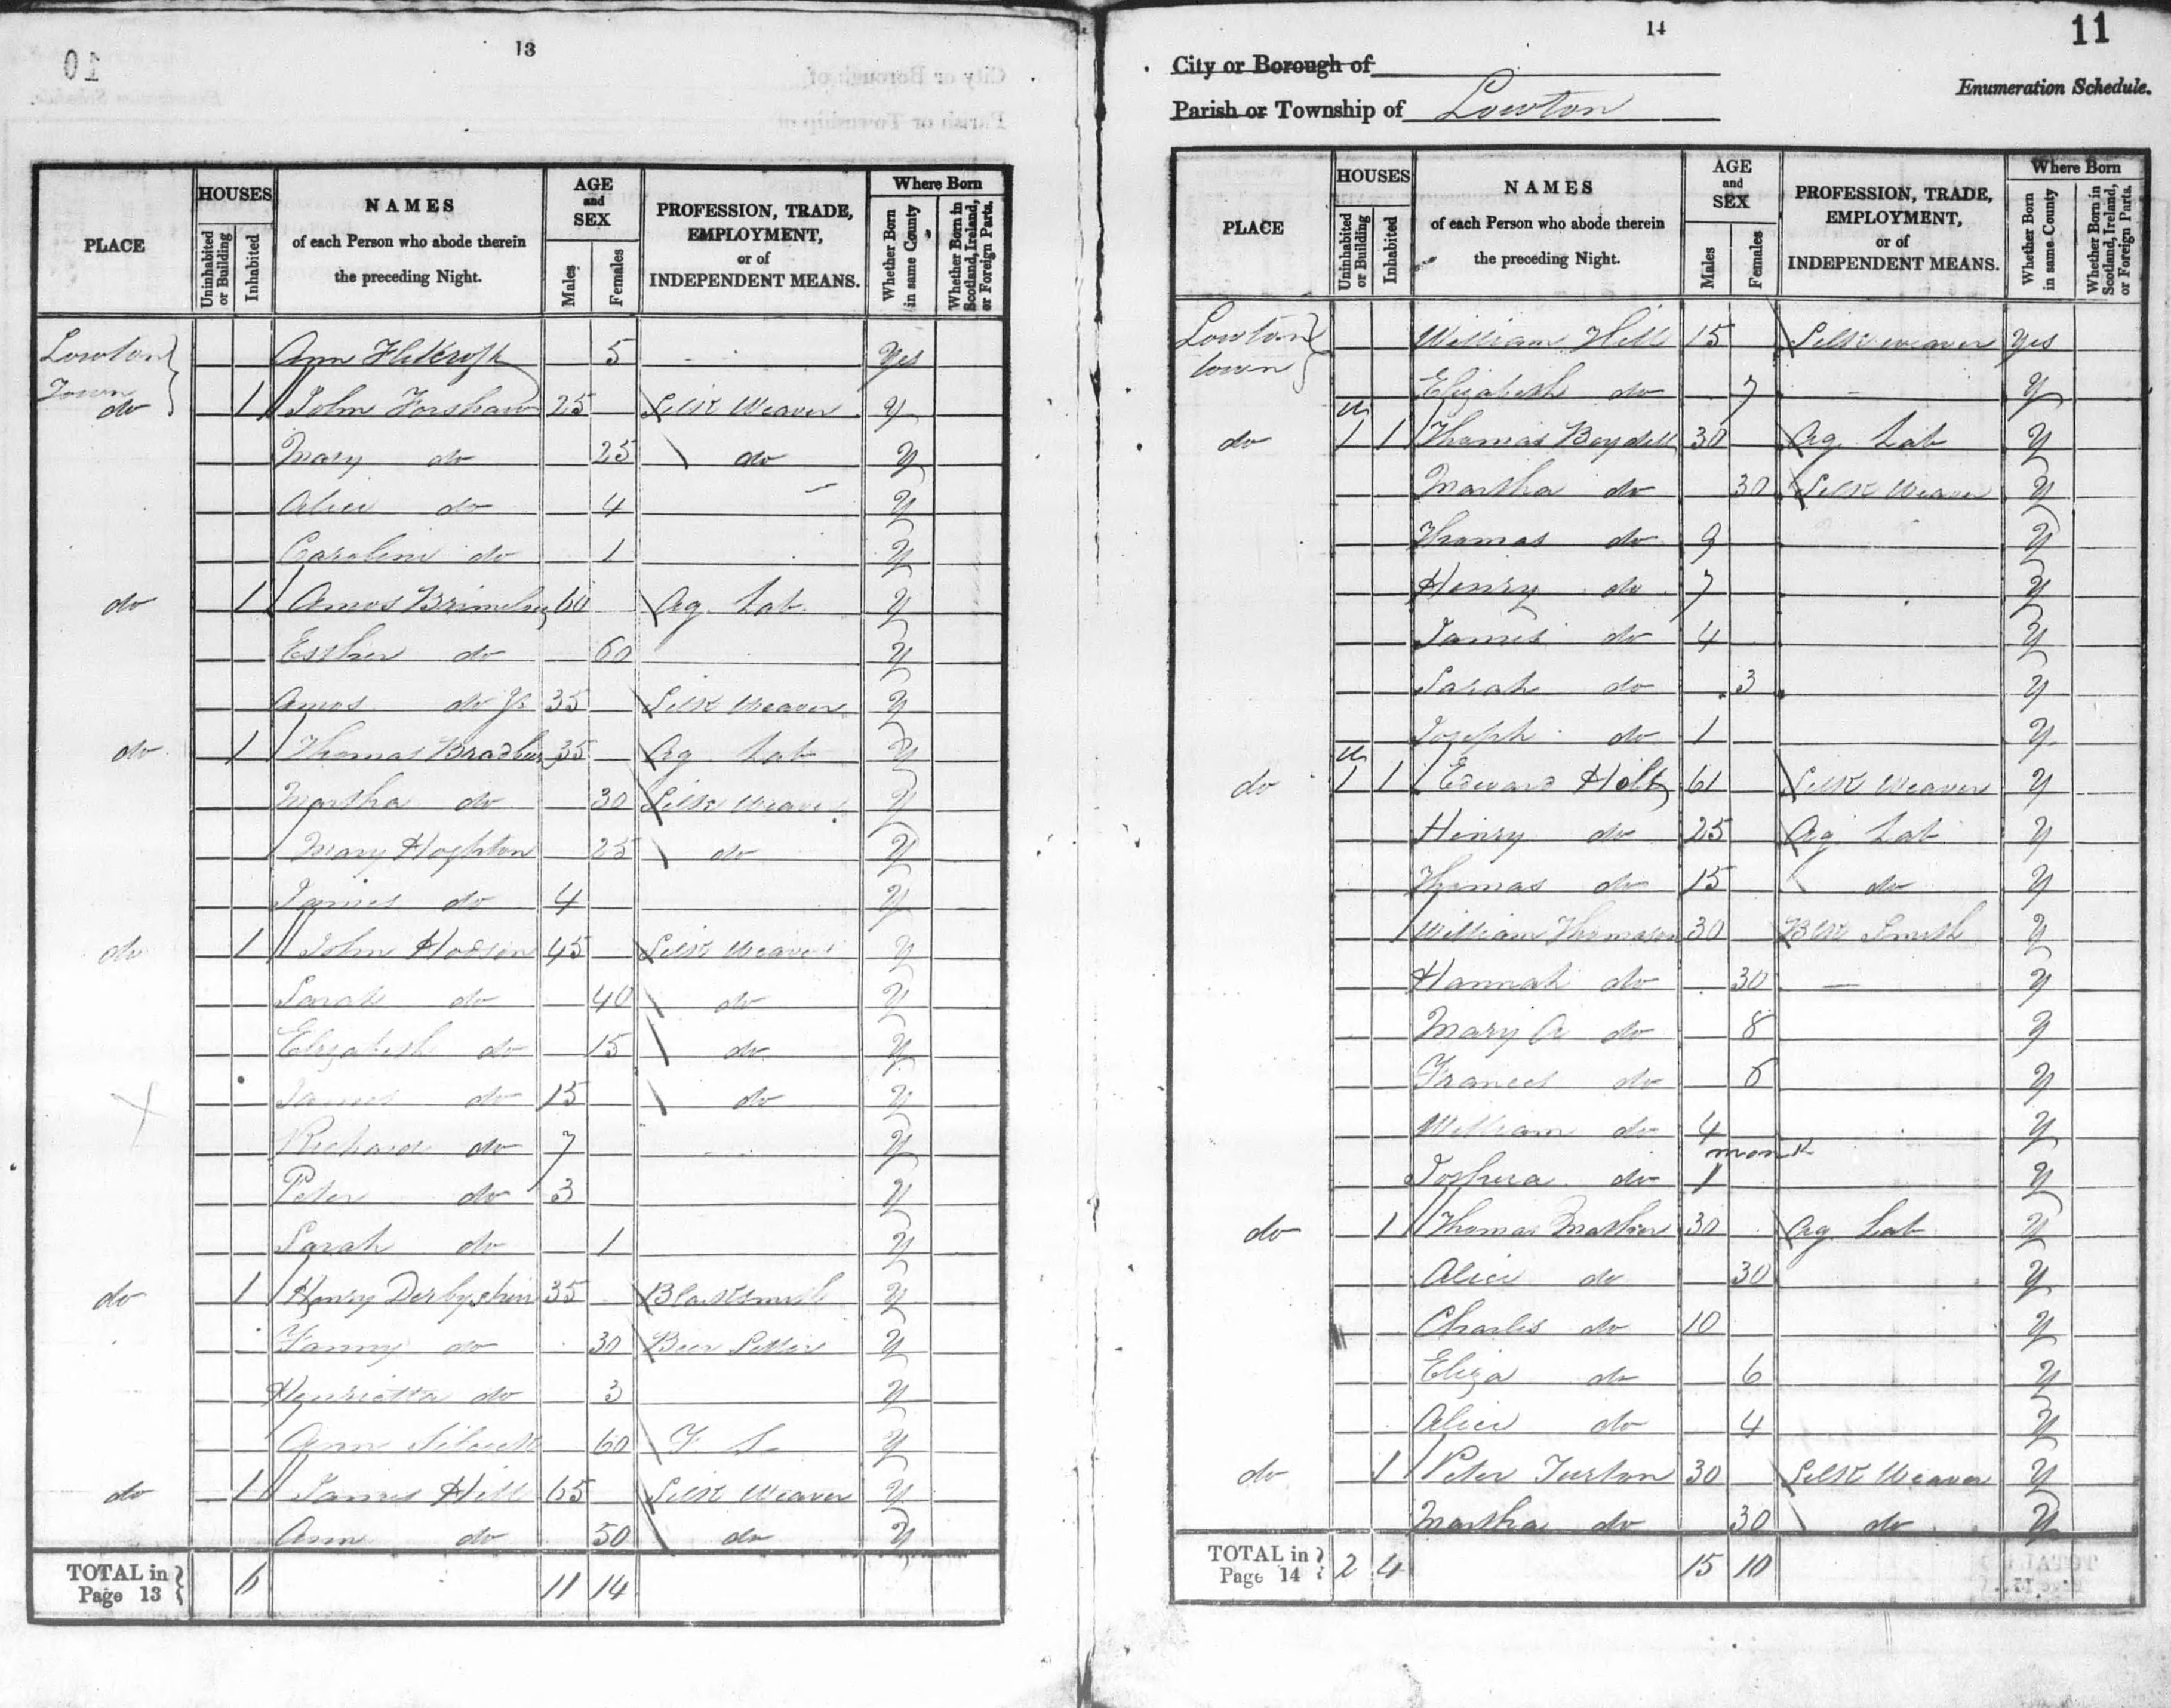 13
PLACE
HOUSES
Uninhabited or Building
Inhabited
NAMES
of each Person who abode therein
the preceding Night.
AGE
and
SEX
Males
Females
PROFESSION, TRADE,
EMPLOYMENT,
or of
INDEPENDENT MEANS.
Where Born
Whether Born in same County
Whether Born in Scotland, Ireland, or Foreign Parts.
Lowton Town Ann 5 Yes
do 1 John Forshaw 25 Silk Weaver Y
Mary do 25 do Y
Alice do 4 Y
Caroline do 1 Y
do 1 Amos 60 Ag. Lab Y
Esther do 60 Y
Amos do Jr 35 Silk Weaver Y
do 1 Thomas Bradbury 35 Ag Lab Y
Martha do 30 Silk Weaver Y
Mary Hoghton 25 do Y
James do 4 Y
do 1 John Hodson 45 Silk Weaver Y
Sarah do 40 do Y
Elizabeth do 15 do Y
James do 15 do Y
Richard do 7 Y
Peter do 3 Y
Sarah do 1 Y
do 1 Henry Derbyshire 35 Blacksmith Y
Fanny do 30 Beer Seller Y
Henrietta do 3 Y
Ann 60 F S Y
do 1 James Hill 65 Silk Weaver Y
Ann do 50 do Y
TOTAL in Page 13 6 11 14
14
11
City or Borough of
Enumeration Schedule.
Parish or Township of Lowton
PLACE
HOUSES
Uninhabited or Building
Inhabited
NAMES
of each Person who abode therein
the preceding Night.
AGE
and
SEX
Males
Females
PROFESSION, TRADE,
EMPLOYMENT,
or of
INDEPENDENT MEANS.
Where Born
Whether Born in same County
Whether Born in Scotland, Ireland, or Foreign Parts.
Lowton town William Hill 15 Silk weaver Yes
Elizabeth do 7 Y
do u 1 1 Thomas Boydell 30 Ag. Lab Y
Martha do 30 Silk Weaver Y
Thomas do 9 Y
Henry do 7 Y
James do 4 Y
Sarah do 3 Y
Joseph do 1 Y
do u 1 1 Edward Holt 61 Silk Weaver Y
Henry do 25 Ag. Lab Y
Thomas do 15 do Y
William Thomason 30 Blk Smith Y
Hannah do 30 Y
Mary A do 8 Y
Frances do 6 Y
William do 4 Y
Joshua do 1 month Y
do 1 Thomas Mather 30 Ag. Lab Y
Alice do 30 Y
Charles do 10 Y
Eliza do 6 Y
Alice do 4 Y
do 1 Peter Turton 30 Silk Weaver Y
Martha do 30 do Y
TOTAL in Page 14 2 4 15 10